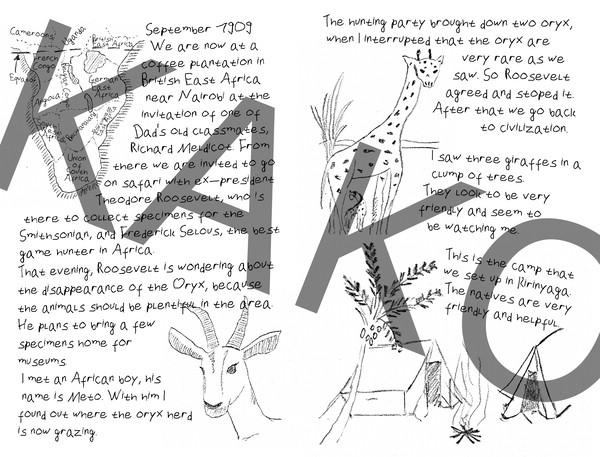 Cameroons
Uganda
British
East Africa
French
Congo
Belgian Congo
German
East
Africa
Equator
Angola
Union
of South
Africa
September 1909
We are now at a
coffee plantation in
British East Africa
near Nairobi at the
invitation of one of
Dad's old classmates,
Richard Meldicot. From
there we are invited to go
on safari with ex-president
Theodore Roosevelt, who is
there to collect specimens for the
Smithsonian, and Frederick Selous, the best
game hunter in Africa.
That evening, Roosevelt is wondering about
the disappearance of the Oryx, because
the animals should be plentiful in the area.
He plans to bring a few
specimens home for
museums.
I met an African boy, his
name is Meto. With him I
found out where the oryx herd
is now grazing.
The hunting party brought down two oryx,
when I interrupted that the oryx are
very rare as we
saw. So Roosevelt
agreed and stoped it.
After that we go back
to civilization.
I saw three giraffes in a
clump of trees.
They look to be very
friendly and seem to
be watching me.
This is the camp that
we set up in Kirinyaga.
The natives are very
friendly and helpful.
KAKO